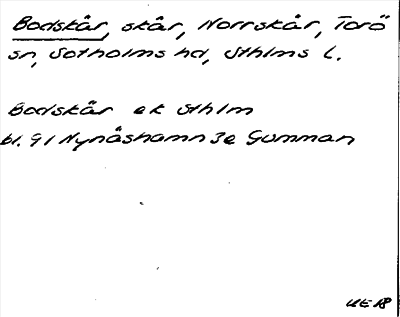 Bodskär, skär, Norrskär, Torö
sn, Sotholms hd, Sthlms l.
Bodskär ek Sthlm
bl. 91 Nynäshamn 3e Gumman